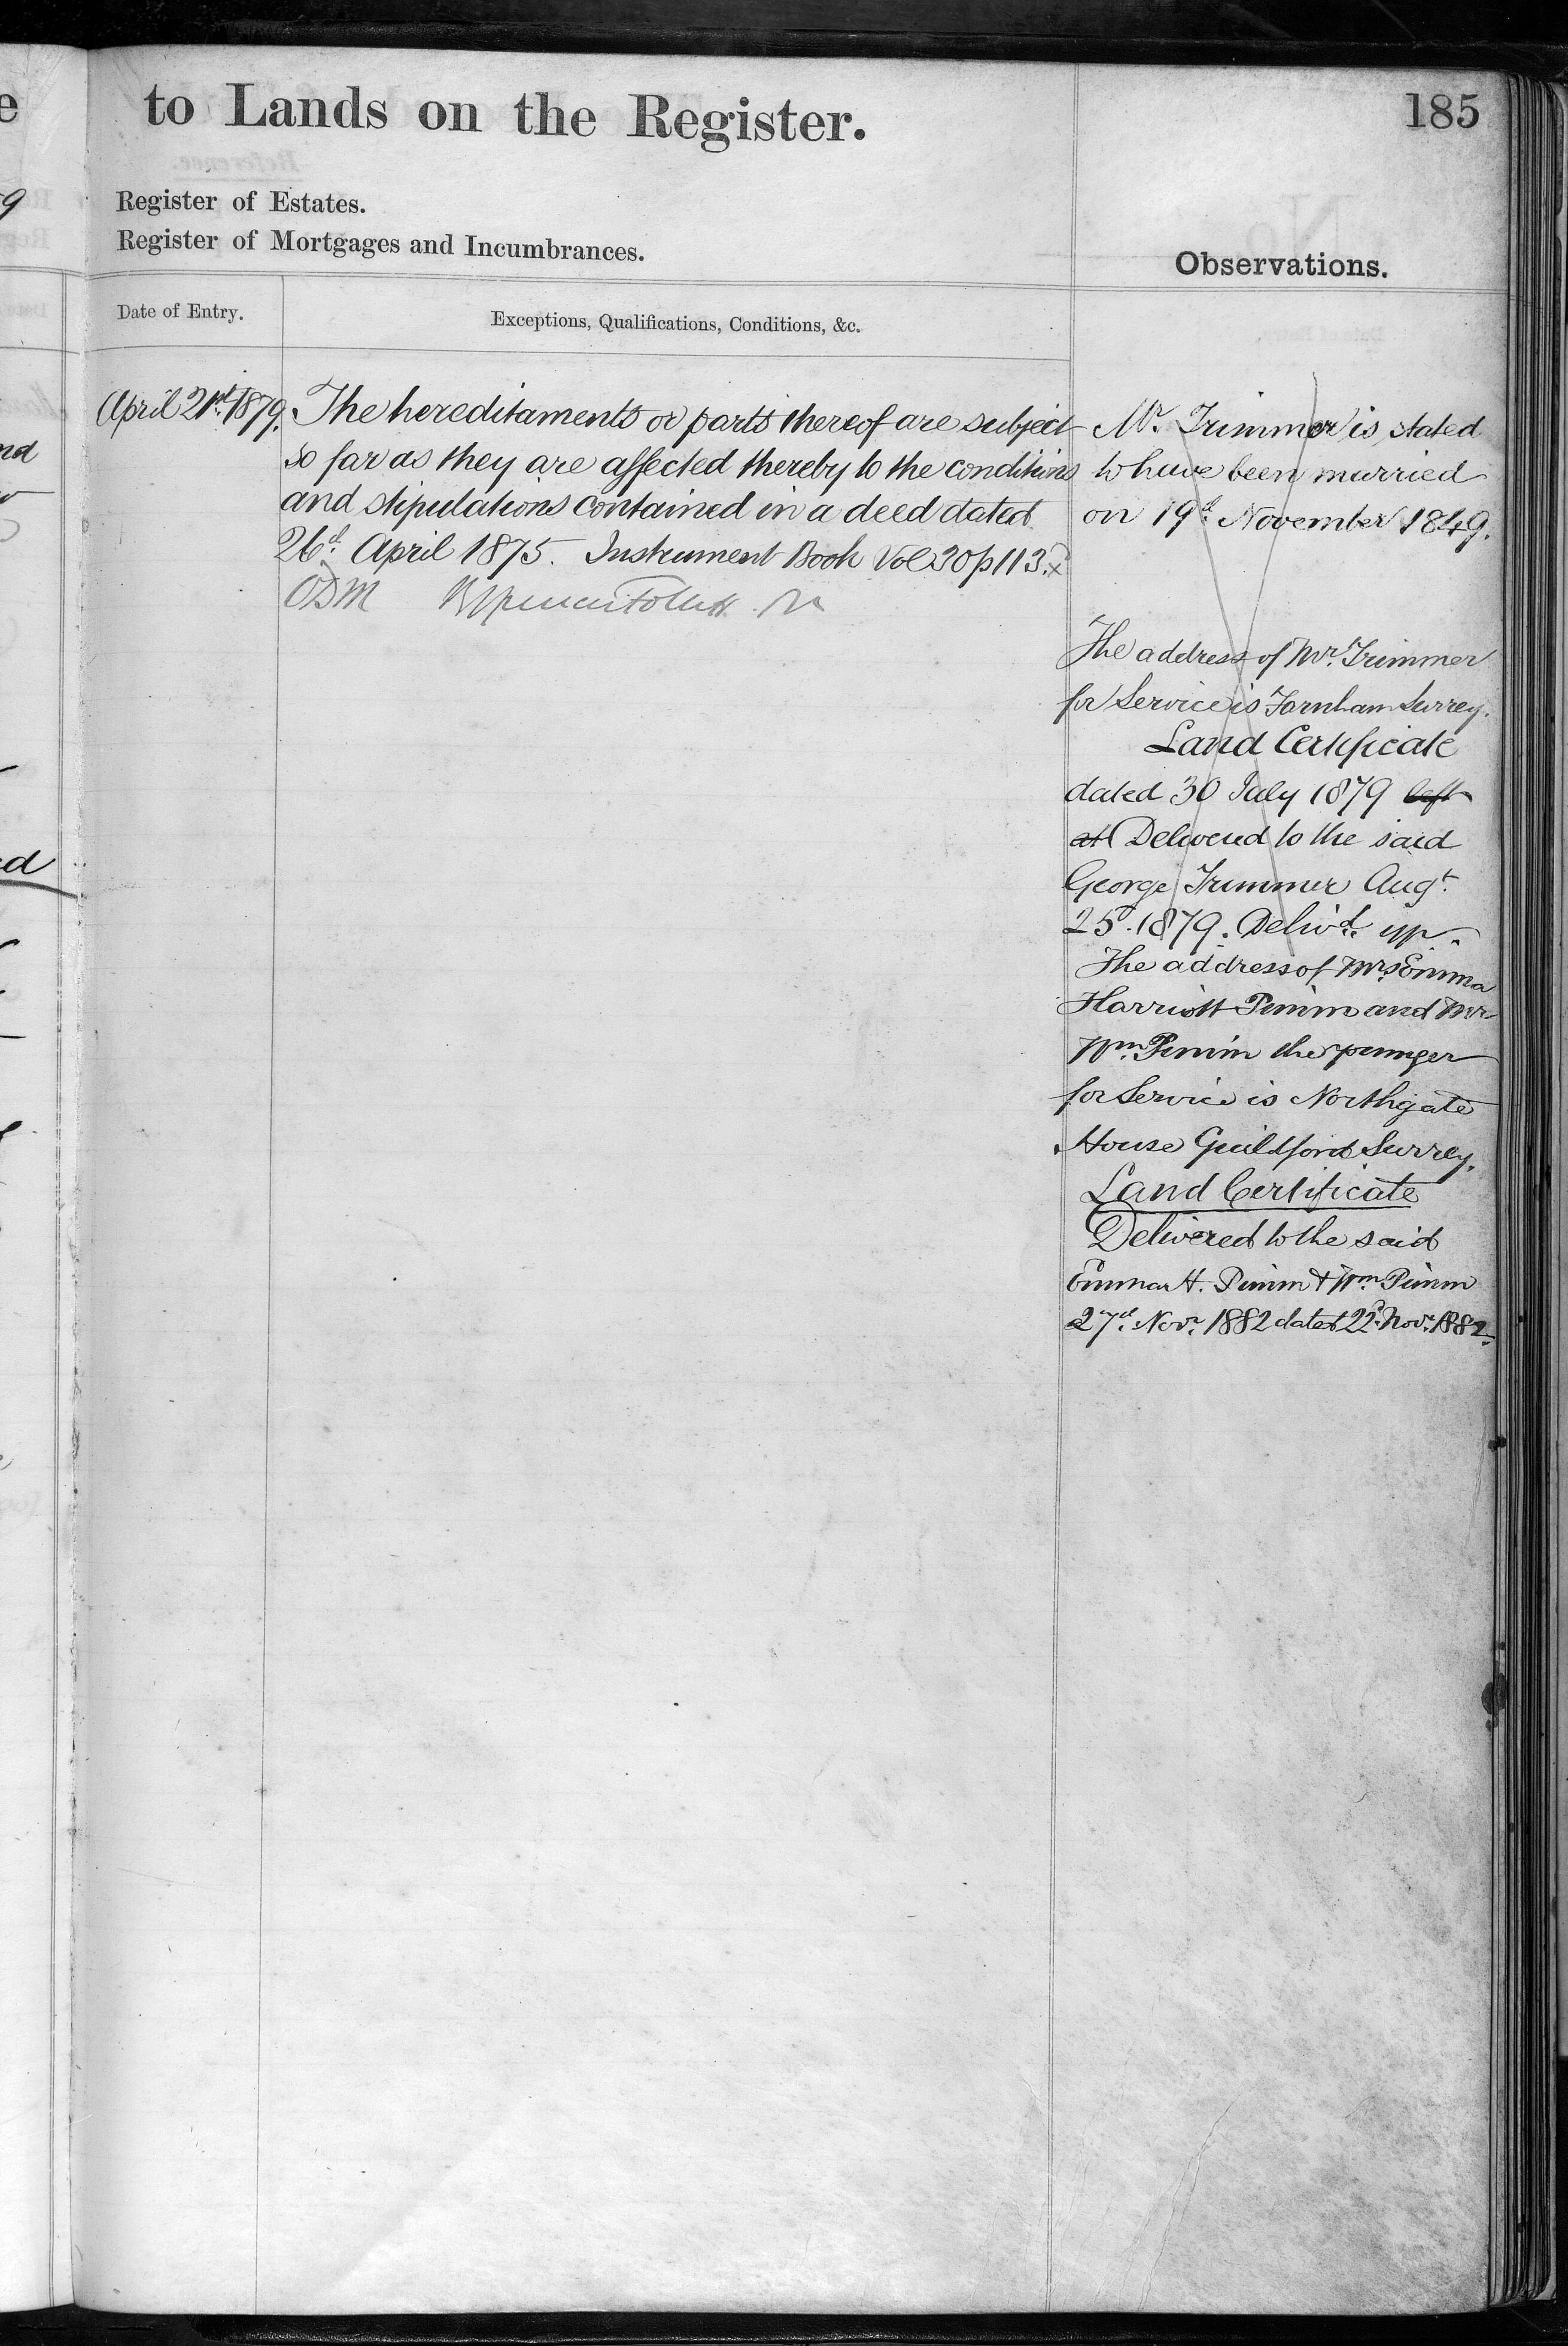 to Lands on the Register.
185
Register of Estates.
Register of Mortgages and Incumbrances.
Observations.
Date of Entry.
Exceptions, Qualifications, Conditions, &c.
April 21st. 1879.
The hereditaments or parts thereof are subject
so far as they are affected thereby to the conditions
and stipulations contained in a deed dated
26th. April 1875. Instrument Book Vol 30 p 113. x
Mr. Trimmer is stated
to have been married
on 19th. November 1849.
The address of Mr. Trimmer
for Service is Farnham Surrey.
Land Certificate
dated 30 July 1879 left
at Delivered to the said
George Trimmer Augt.
25. 1879. Delivd. up.
The address of Mrs Emma
Harriott Pimm and Mr.
Wm. Pimm the younger
for Service is Northgate
House Guildford Surrey.
Land Certificate
Delivered to the said
Emma H. Pimm & Wm. Pimm
27th. Novr. 1882 dated 22d. Novr. 1882.